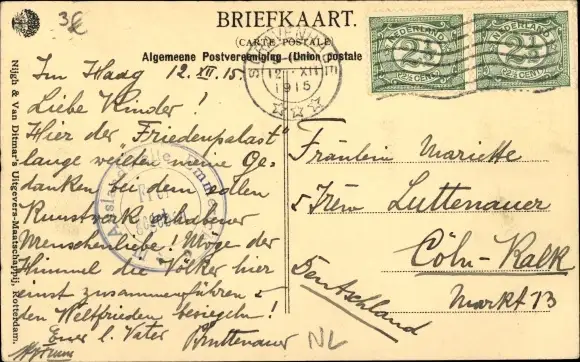 3€
BRIEFKAART.
(CARTE POSTALE)
Algemeene Postvereeniging (Union postale
'SGRAVENHAGE
12 XII
1915
NEDERLAND
2½
2½ CENT
NEDERLAND
2½
2½ CENT
Im Haag 12. XII. 15.
Liebe Kinder!
Hier der „Friedenpalast“
lange weilten meine Ge-
danken bei dem edlen
Kunstwerk erhabener
Menschenliebe! Möge der
Himmel die Völker hier
einst zusammenführen &
den Weltfrieden besiegeln!
Euer l. Vater
Fräulein Mariette
Luttenauer
Cöln-Kalk
Markt 13
Deutschland
NL
Nijgh & Van Ditmar's Uitgevers-Maatschappij, Rotterdam.